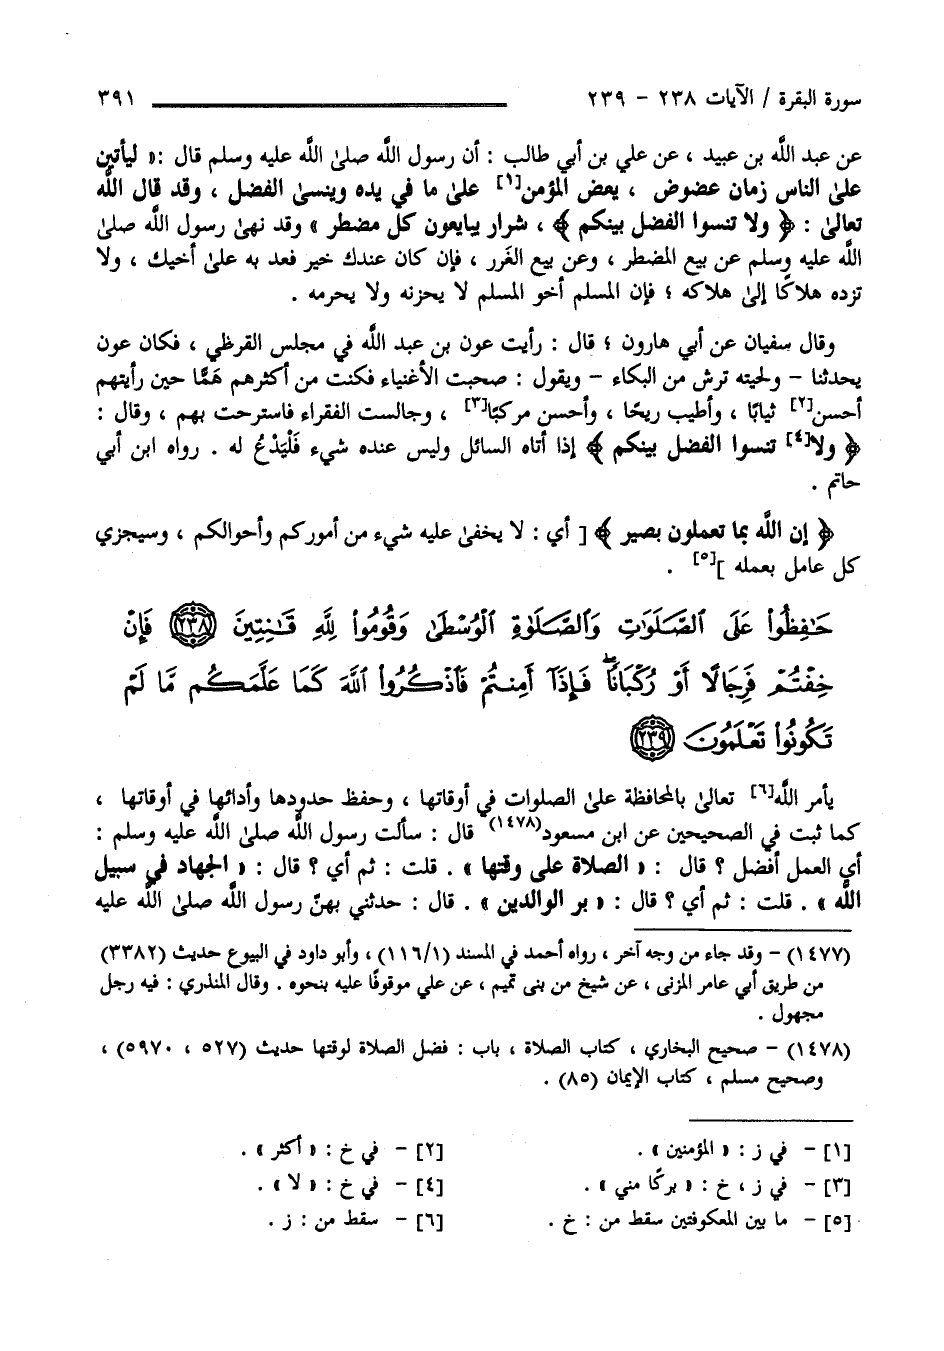 سورة البقرة / الآيات ٢٣٨ - ٢٣٩ ٣٩١
عن عبد اللَّه بن عبيد ، عن علي بن أبي طالب : أن رسول اللَّه صلىٰ اللَّه عليه وسلم قال : « ليأتين
علىٰ الناس زمان عضوض ، يعض المؤمن[١] علىٰ ما في يده وينسىٰ الفضل ، وقد قال اللَّه
تعالىٰ : ﴿ ولا تنسوا الفضل بينكم ﴾ ، شرار يبايعون كل مضطر » وقد نهىٰ رسول اللَّه صلىٰ
اللَّه عليه وسلم عن بيع المضطر ، وعن بيع الغَرر ، فإن كان عندك خير فعد به علىٰ أخيك ، ولا
تزده هلاكًا إلىٰ هلاكه ؛ فإن المسلم أخو المسلم لا يحزنه ولا يحرمه .
وقال سفيان عن أبي هارون ؛ قال : رأيت عون بن عبد اللَّه في مجلس القرظي ، فكان عون
يحدثنا - ولحيته ترش من البكاء - ويقول : صحبت الأغنياء فكنت من أكثرهم هَمًّا حين رأيتهم
أحسن[٢] ثيابًا ، وأطيب ريحًا ، وأحسن مركبًا[٣] ، وجالست الفقراء فاسترحت بهم ، وقال :
﴿ ولا[٤] تنسوا الفضل بينكم ﴾ إذا أتاه السائل وليس عنده شيء فَلْيَدْعُ له . رواه ابن أبي
حاتم .
﴿ إن اللَّه بما تعملون بصير ﴾ [ أي : لا يخفىٰ عليه شيء من أموركم وأحوالكم ، وسيجزي
كل عامل بعمله ][٥] .
حَـٰفِظُوا۟ عَلَى ٱلصَّلَوَٰتِ وَٱلصَّلَوٰةِ ٱلْوُسْطَىٰ وَقُومُوا۟ لِلَّهِ قَـٰنِتِينَ ﴿٢٣٨﴾ فَإِنْ
خِفْتُمْ فَرِجَالًا أَوْ رُكْبَانًا ۖ فَإِذَآ أَمِنتُمْ فَٱذْكُرُوا۟ ٱللَّهَ كَمَا عَلَّمَكُم مَّا لَمْ
تَكُونُوا۟ تَعْلَمُونَ ﴿٢٣٩﴾
يأمر اللَّه[٦] تعالىٰ بالمحافظة علىٰ الصلوات في أوقاتها ، وحفظ حدودها وأدائها في أوقاتها ،
كما ثبت في الصحيحين عن ابن مسعود(١٤٧٨) قال : سألت رسول اللَّه صلىٰ اللَّه عليه وسلم :
أي العمل أفضل ؟ قال : « الصلاة على وقتها » . قلت : ثم أي ؟ قال : « الجهاد في سبيل
اللَّه » . قلت : ثم أي ؟ قال : « بر الوالدين » . قال : حدثني بهنّ رسول اللَّه صلىٰ اللَّه عليه
(١٤٧٧) - وقد جاء من وجه آخر ، رواه أحمد في المسند (١١٦/١) ، وأبو داود في البيوع حديث (٣٣٨٢)
من طريق أبي عامر المزنى ، عن شيخ من بنى تميم ، عن علي موقوفًا عليه بنحوه . وقال المنذري : فيه رجل
مجهول .
(١٤٧٨) - صحيح البخاري ، كتاب الصلاة ، باب : فضل الصلاة لوقتها حديث (٥٢٧ ، ٥٩٧٠) ،
وصحيح مسلم ، كتاب الإيمان (٨٥) .
[١] - في ز : « المؤمنين » . [٢] - في خ : « أكثر » .
[٣] - في ز ، خ : « بركًا مني » . [٤] - في خ : « لا » .
[٥] - ما بين المعكوفتين سقط من : خ . [٦] - سقط من : ز .